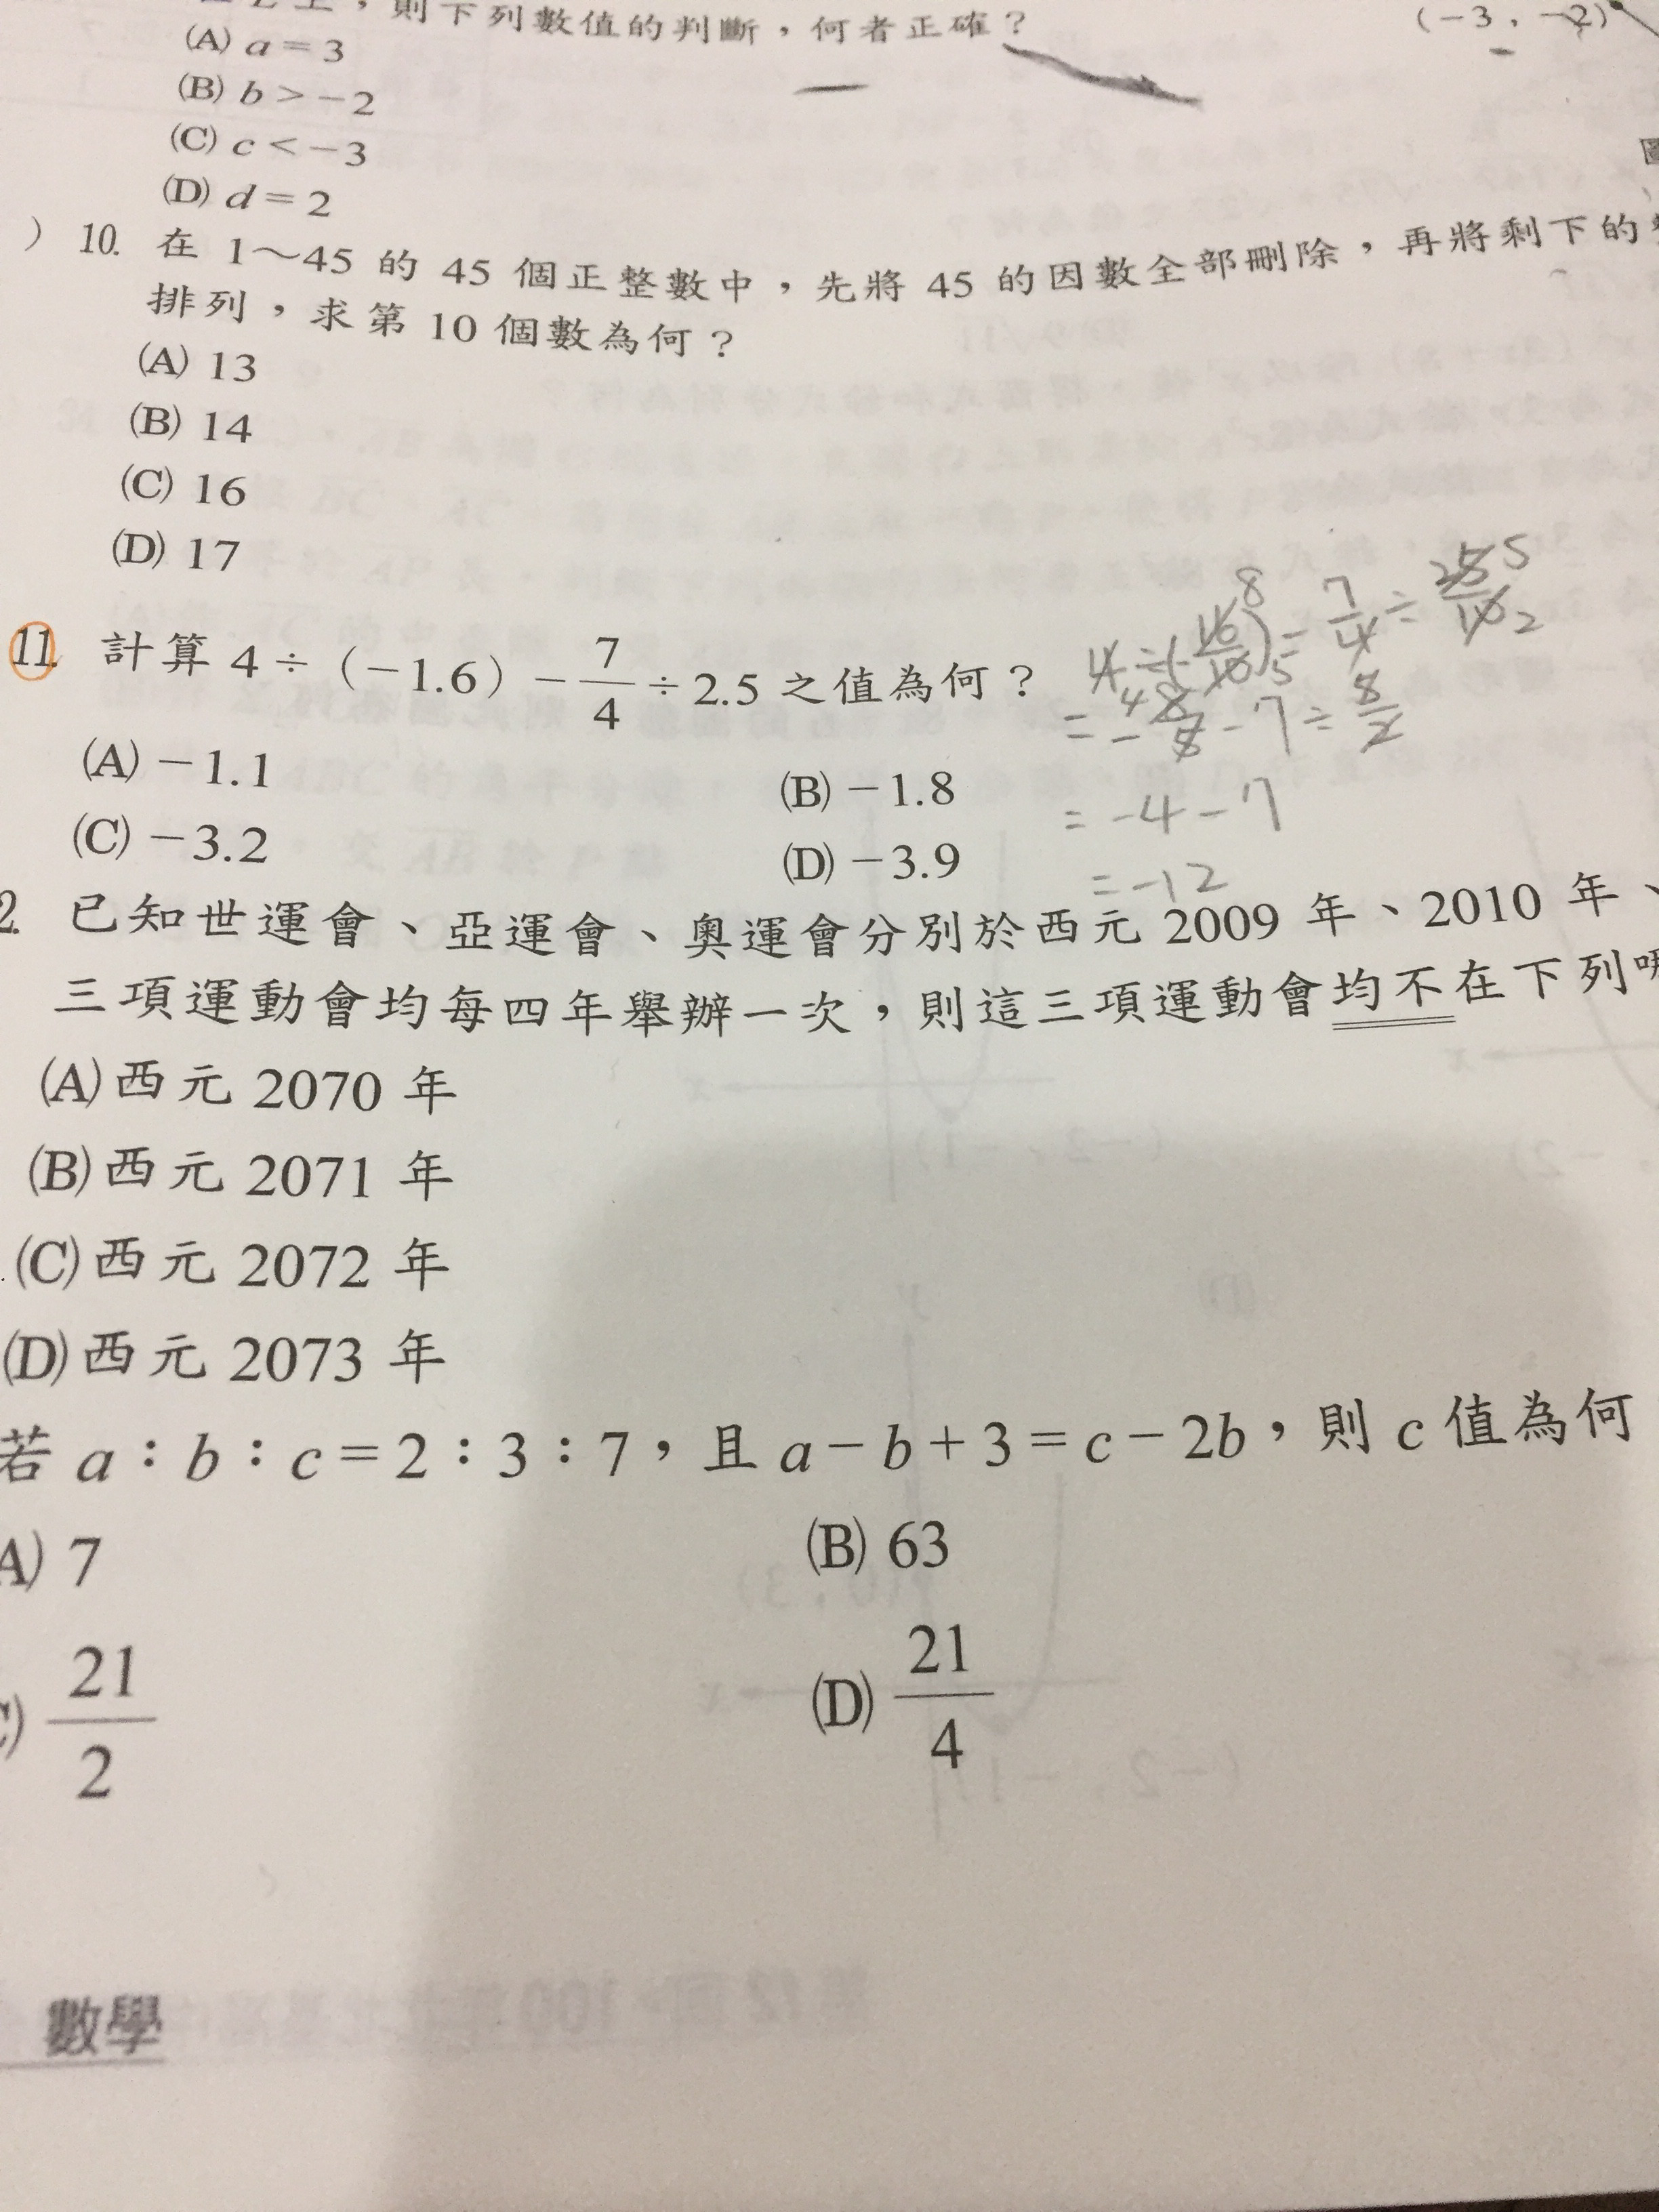 上，則下列數值的判斷，何者正確？
(－3，－2)
(A) a＝3
(B) b＞－2
(C) c＜－3
(D) d＝2
) 10. 在 1～45 的 45 個正整數中，先將 45 的因數全部刪除，再將剩下的
排列，求第 10 個數為何？
(A) 13
(B) 14
(C) 16
(D) 17
11. 計算 4÷（－1.6）－7/4÷2.5 之值為何？
(A)－1.1
(B)－1.8
(C)－3.2
(D)－3.9
= -4 - 7
= -12
2. 已知世運會、亞運會、奧運會分別於西元 2009 年、2010 年、
三項運動會均每四年舉辦一次，則這三項運動會均不在下列
(A)西元 2070 年
(B)西元 2071 年
(C)西元 2072 年
(D)西元 2073 年
若 a：b：c＝2：3：7，且 a－b＋3＝c－2b，則 c 值為何
A) 7
(B) 63
) 21/2
(D) 21/4
數學